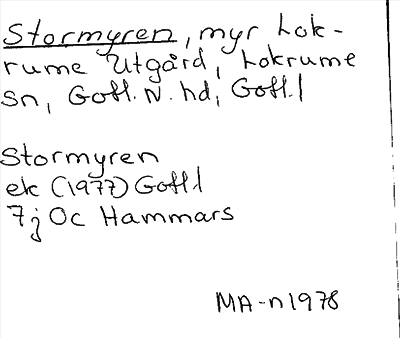 Stormyren, myr Lok-
rume Utgård, Lokrume
sn, Gotl. N. hd, Gotl. l
Stormyren
ek (1977) Gotl l
7j Oc Hammars
MA-n 1978